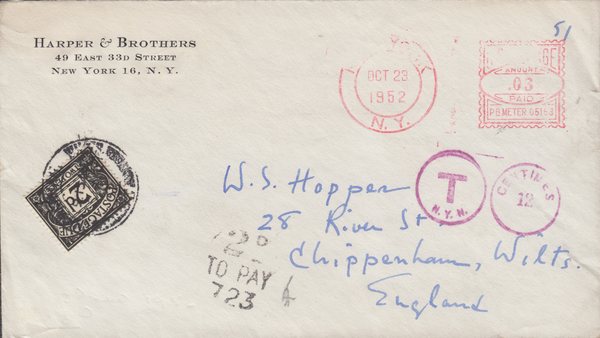 HARPER & BROTHERS
49 EAST 33D STREET
NEW YORK 16, N. Y.
OCT 23
1952
N. Y.
AMOUNT
.03
PAID
P.B. METER 05153
51
T
N.Y.N.
CENTIMES
12
POSTAGE DUE
2d.
W. S. Hopper
28 River St.
Chippenham, Wilts.
England
2D
TO PAY
723